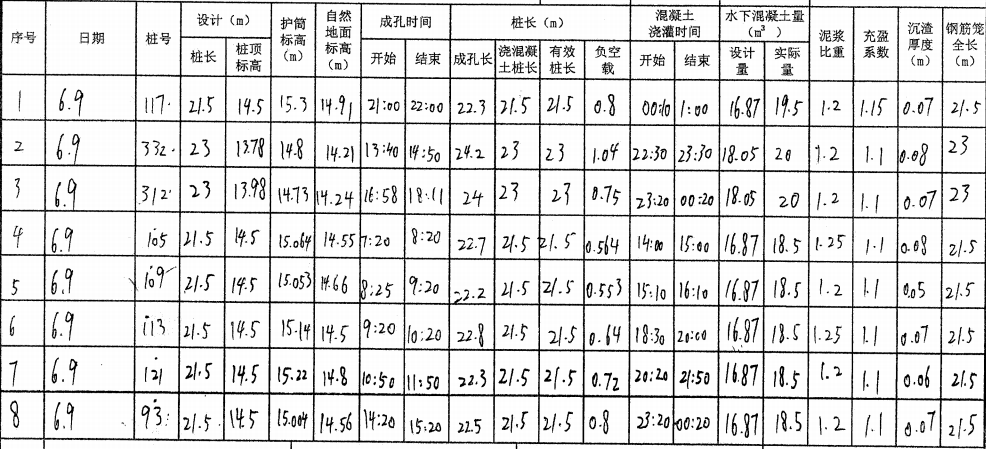 序号 日期 桩号 设计（m） 护筒标高（m） 自然地面标高（m） 成孔时间 桩长（m） 混凝土浇灌时间 水下混凝土量（m³） 泥浆比重 充盈系数 沉渣厚度（m） 钢筋笼全长（m）
桩长 桩顶标高 开始 结束 成孔长 浇混凝土桩长 有效桩长 负空载 开始 结束 设计量 实际量
1 6.9 117 21.5 14.5 15.3 14.91 21:00 22:00 22.3 21.5 21.5 0.8 00:10 1:00 16.87 19.5 1.2 1.15 0.07 21.5
2 6.9 332 23 13.78 14.8 14.21 13:40 14:50 24.2 23 23 1.04 22:30 23:30 18.05 20 1.2 1.1 0.08 23
3 6.9 312 23 13.98 14.73 14.24 16:58 18:11 24 23 23 0.75 23:20 00:20 18.05 20 1.2 1.1 0.07 23
4 6.9 105 21.5 14.5 15.064 14.55 7:20 8:20 22.7 21.5 21.5 0.564 14:00 15:00 16.87 18.5 1.25 1.1 0.08 21.5
5 6.9 109 21.5 14.5 15.053 14.66 8:25 9:20 22.2 21.5 21.5 0.553 15:10 16:10 16.87 18.5 1.2 1.1 0.05 21.5
6 6.9 113 21.5 14.5 15.14 14.5 9:20 10:20 22.8 21.5 21.5 0.64 18:30 20:00 16.87 18.5 1.25 1.1 0.07 21.5
7 6.9 121 21.5 14.5 15.22 14.8 10:50 11:50 22.3 21.5 21.5 0.72 20:20 21:50 16.87 18.5 1.2 1.1 0.06 21.5
8 6.9 93 21.5 14.5 15.004 14.56 14:20 15:20 22.5 21.5 21.5 0.8 23:20 00:20 16.87 18.5 1.2 1.1 0.07 21.5